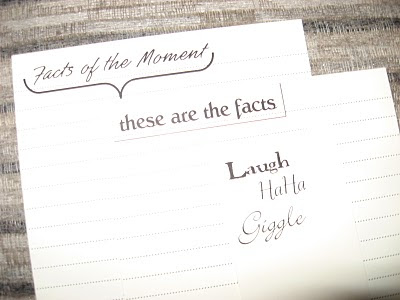 Facts of the Moment
these are the facts
Laugh
HaHa
Giggle